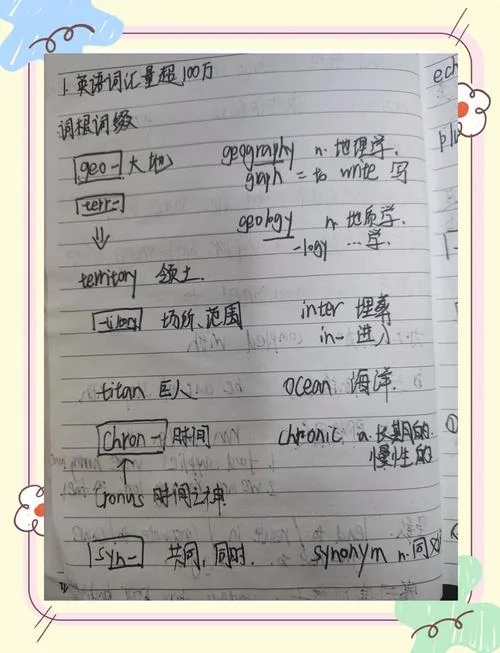 1. 英语词汇量超100万
ech
词根词缀
geo- 大地 geography n. 地理学.
graph = to write 写
terr-
geology n. 地质学.
-logy …学.
territory 领土.
-itory 场所、范围 inter 埋葬
in- 进入
titan 巨人 ocean 海洋.
chron- 时间 chronic a. 长期的.
慢性的
Cronus 时间之神
syn- 共同, 同时. synonym n. 同义